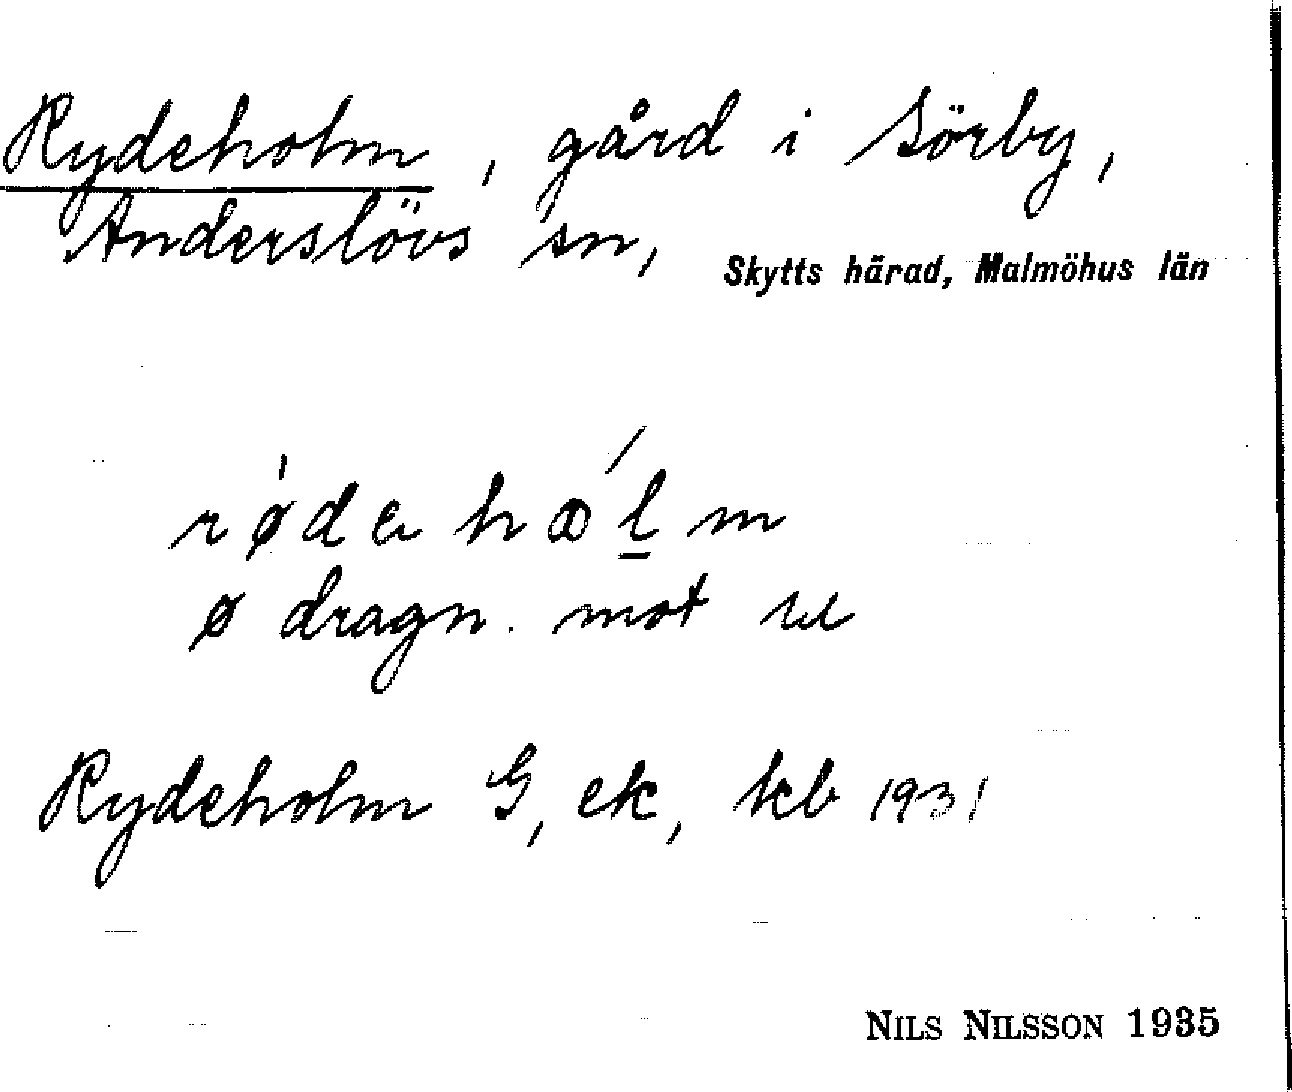 Rydeholm, gård i Sörby,
Anderslövs sn, Skytts härad, Malmöhus län
ø dragn. mot
Rydeholm G, ek, kb 1931
NILS NILSSON 1935